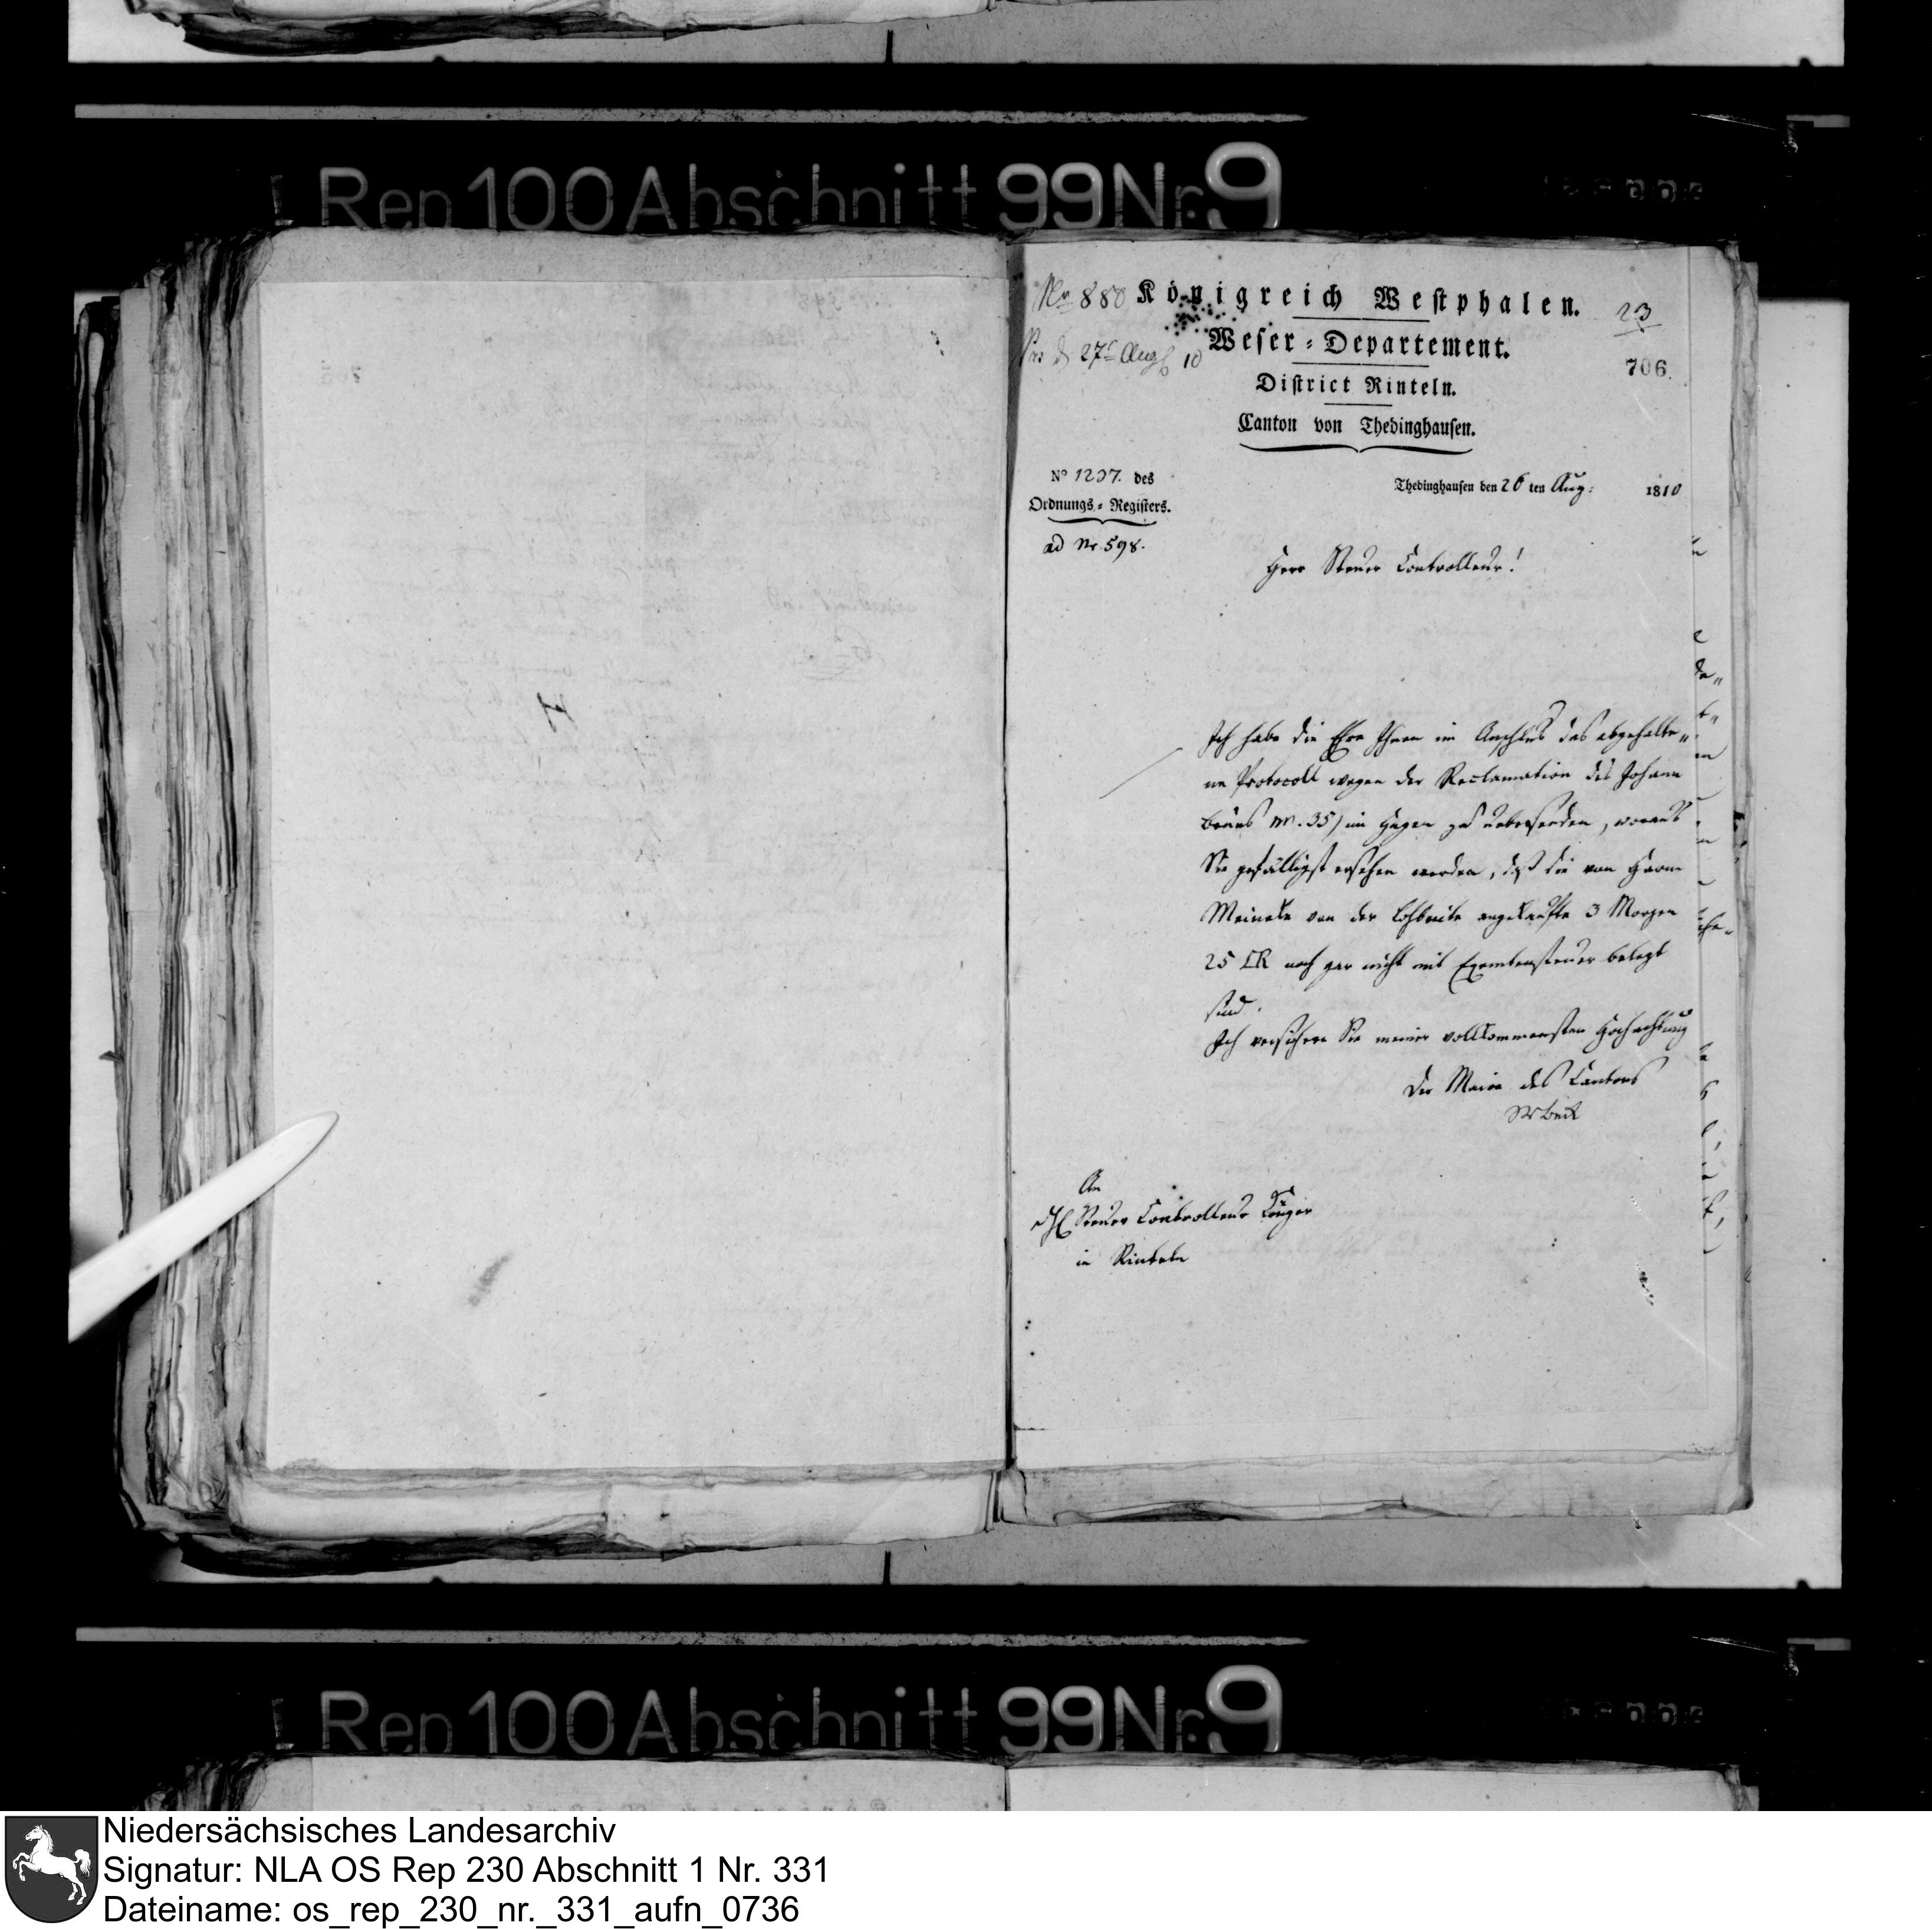 Rep 100 Abschnitt 99 Nr. 9
Nr 880 Königreich Westphalen. 23
d 27t Aug 10 Weser-Departement.
706
District Rinteln.
Canton von Thedinghausen.
No 1207. des
Ordnungs-Registers.
ad Nr. 598.
Thedinghausen den 26 ten Aug: 1810
Herr Steuer Controlleur!
Ich habe die Ehre Ihnen im Anschluß das abgehalte„
ne Protocoll wegen der Reclamation des Johann
Bruns Nr. 35) im Hagen zu uebersenden, woraus
Sie gefälligst ersehen werden, daß die von Harm
Meineke von der Lohbreite angekaufte 3 Morgen
25 □R noch gar nicht mit Exemtensteuer belegt
sind.
Ich versichere Sie meiner vollkommensten Hochachtung
Der Maire des Cantons
An
Steuer Controlleur Krüger
in Rinteln
Rep 100 Abschnitt 99 Nr. 9
Niedersächsisches Landesarchiv
Signatur: NLA OS Rep 230 Abschnitt 1 Nr. 331
Dateiname: os_rep_230_nr._331_aufn_0736